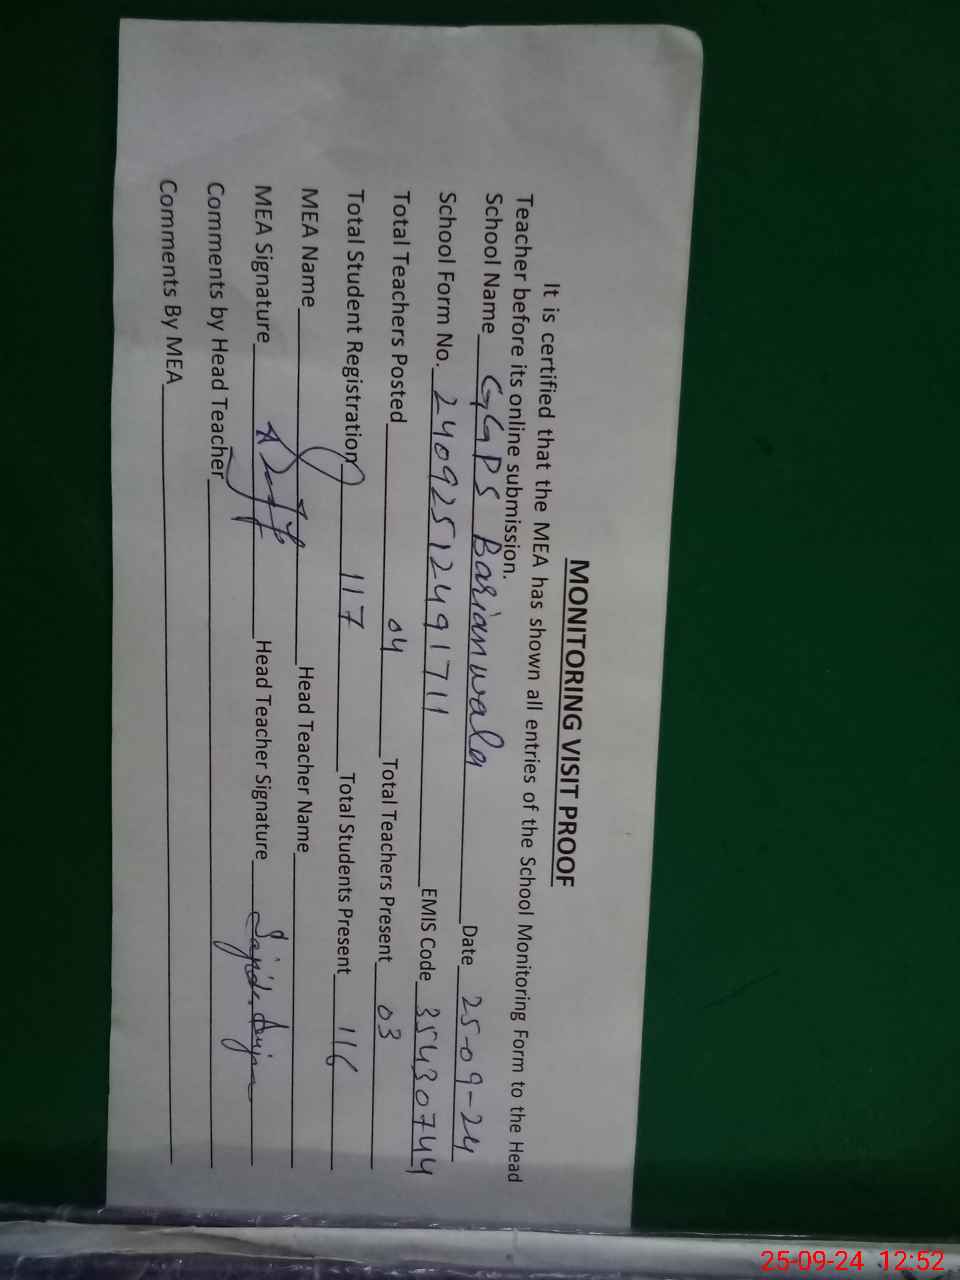 MONITORING VISIT PROOF
It is certified that the MEA has shown all entries of the School Monitoring Form to the Head
Teacher before its online submission.
School Name GGPS Barianwala Date 25-09-24
School Form No. 24092512491711 EMIS Code 35430744
Total Teachers Posted 04 Total Teachers Present 03
Total Student Registration 117 Total Students Present 116
MEA Name Head Teacher Name
MEA Signature Head Teacher Signature
Comments by Head Teacher
Comments By MEA
25-09-24 12:52